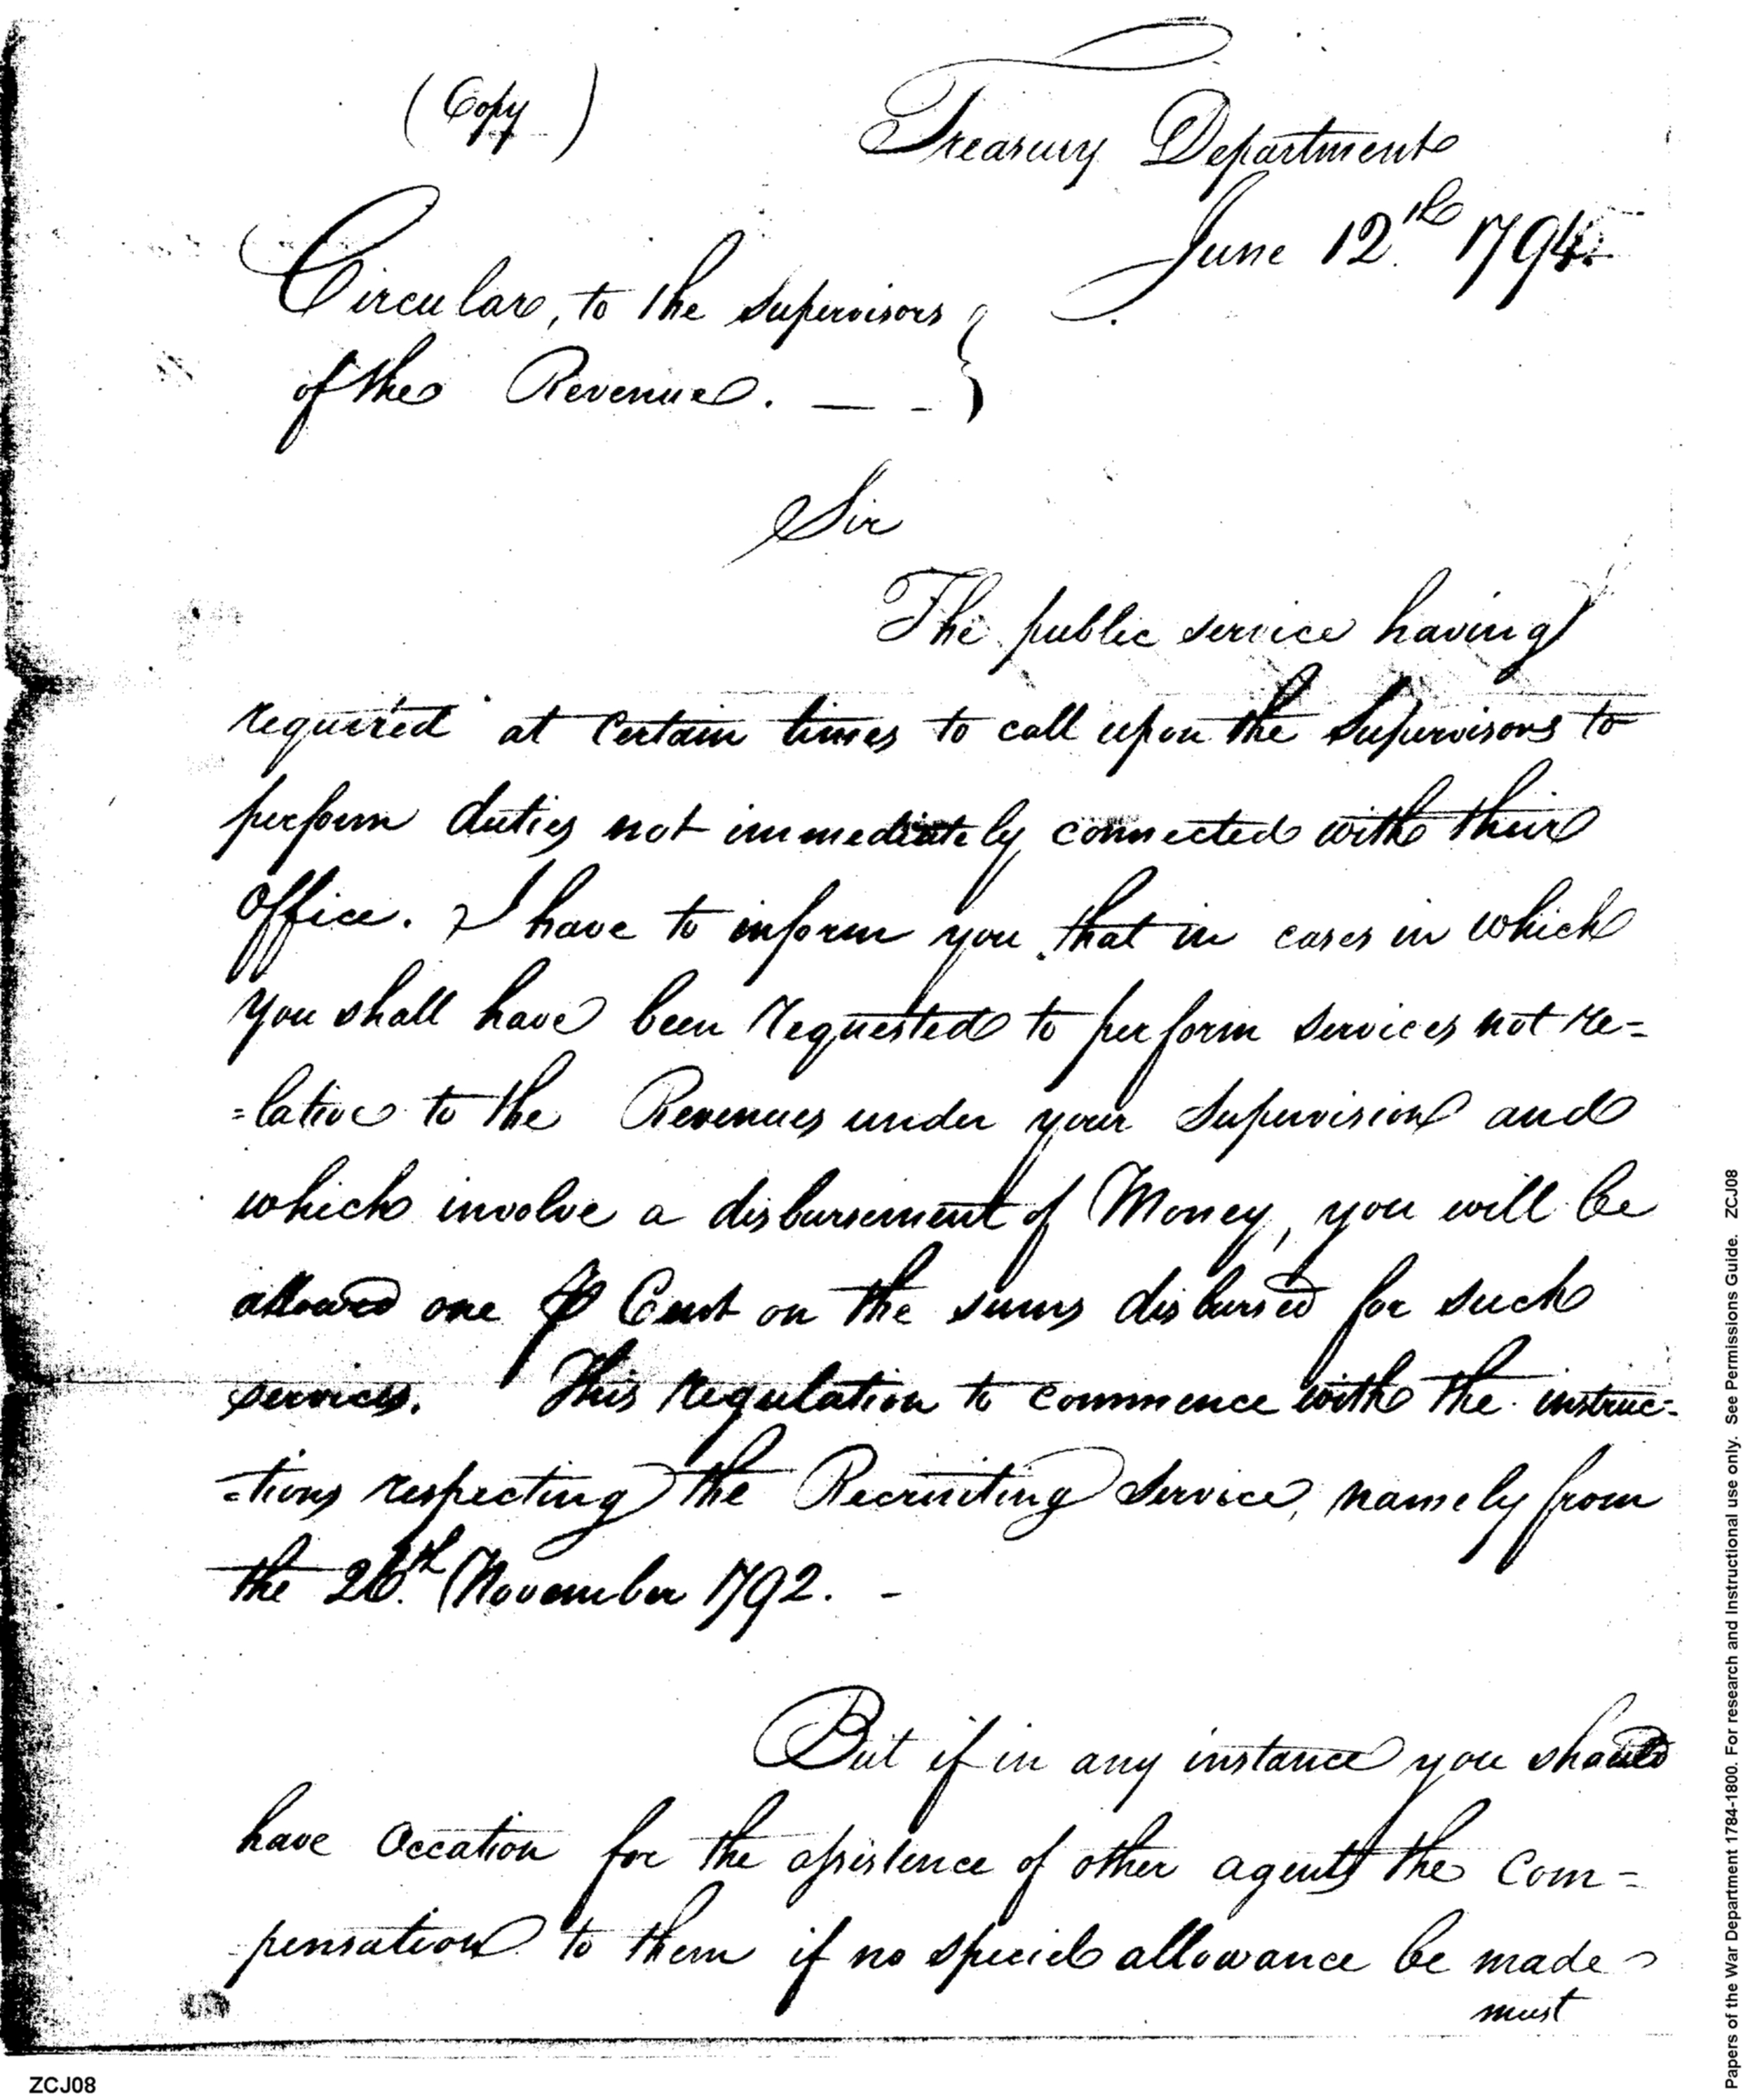 (Copy)
Treasury Department
June 12.th 1794.
Circular, to the Supervisors
of the Revenue. — -
Sir
The public service having
required at Certain times to call upon the Supervisors to
perform duties not immediately connected with their
Office. I have to inform you that in cases in which
you shall have been requested to perform services not re=
=lative to the Revenues under your Supervision and
which involve a disbursement of Money, you will be
allowed one ⅌ Cent on the sums disbursed for such
services. This regulation to commence with the instruc=
=tions respecting the Recruiting Service, namely from
the 26.th November 1792. -
But if in any instance you should
have Occation for the assistence of other agents the Com=
-pensation to them if no speciel allowance be made
must
ZCJ08
Papers of the War Department 1784-1800. For research and Instructional use only. See Permissions Guide. ZCJ08